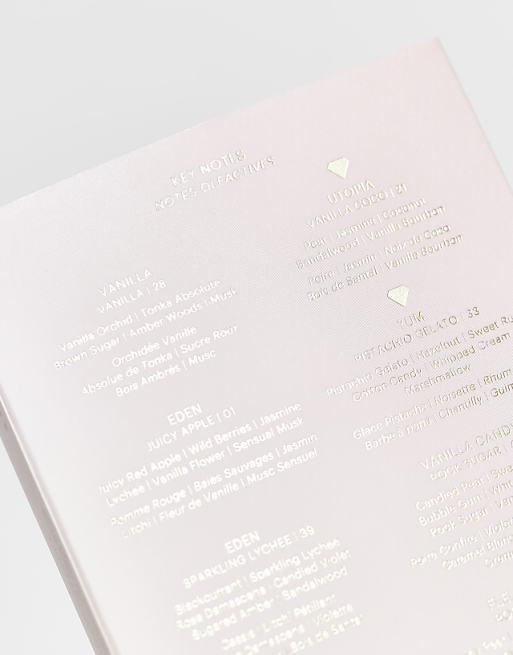 KEY NOTES
NOTES OLFACTIVES
VANILLA
VANILLA | 28
Vanilla Orchid | Tonka Absolute
Brown Sugar | Amber Woods | Musk
Orchidée Vanille
Absolue de Tonka | Sucre Roux
Bois Ambrés | Musc
EDEN
JUICY APPLE | 01
Juicy Red Apple | Wild Berries | Jasmine
Lychee | Vanilla Flower | Sensual Musk
Pomme Rouge | Baies Sauvages | Jasmin
Litchi | Fleur de Vanille | Musc Sensuel
EDEN
SPARKLING LYCHEE | 39
Blackcurrant | Sparkling Lychee
Rose Damascena | Candied Violet
Sugared Amber | Sandalwood
Cassis | Litchi Pétillant
Damascena | Violette
Bois de Santal
UTOPIA
VANILLA COCO | 21
Pear | Jasmine | Coconut
Sandalwood | Vanilla Bourbon
Poire | Jasmin | Noix de Coco
Bois de Santal | Vanille Bourbon
YUM
PISTACHIO GELATO | 33
Pistachio Gelato | Hazelnut | Sweet Ru
Cotton Candy | Whipped Cream
Marshmallow
Glace Pistache | Noisette | Rhum
Barbe à Papa | Chantilly | Guim
VANILLA CAND
ROCK SUGAR |
Candied Pear
Bubble Gum |
Rock Sugar |
Poire Confite |